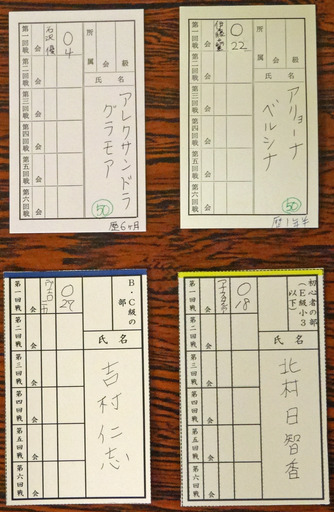 所属会級
氏名
アレクサンドラ
グラモア
50
歴6ヶ月
第一回戦 会 0 4
第二回戦 会
第三回戦 会
第四回戦 会
第五回戦 会
第六回戦 会
所属会級
氏名
アリョーナ
ベルシナ
50
歴1年半
第一回戦 会 0 22
第二回戦 会
第三回戦 会
第四回戦 会
第五回戦 会
第六回戦 会
B・C級の部
氏名
吉村仁志
第一回戦 会 0 27
第二回戦 会
第三回戦 会
第四回戦 会
第五回戦 会
第六回戦 会
初心者の部
(E級小3以下)
氏名
北村日智香
第一回戦 会 0 18
第二回戦 会
第三回戦 会
第四回戦 会
第五回戦 会
第六回戦 会